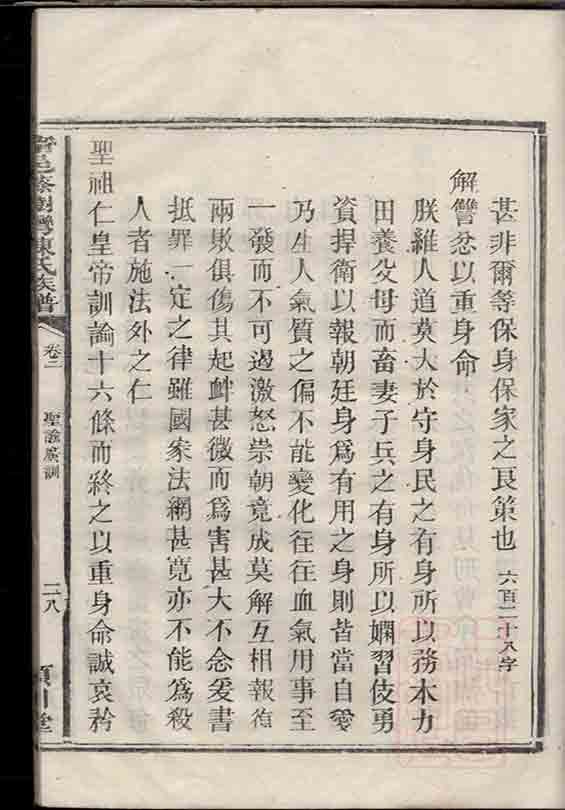 甚非爾等保身保家之良策也 六百二十八字
解讐忿以重身命
朕維人道莫大於守身民之有身所以務本力
田養父母而畜妻子兵之有身所以嫻習伎勇
資捍衛以報朝廷身爲有用之身則皆當自愛
乃生人氣質之偏不能變化往往血氣用事至
一發而不可遏激怒崇朝竟成莫解互相報復
兩敗俱傷其起衅甚微而爲害甚大不念爰書
抵罪一定之律雖國家法網甚寬亦不能爲殺
人者施法外之仁
聖祖仁皇帝訓諭十六條而終之以重身命誠哀矜
陳氏族譜
卷二
聖諭廣訓
二八
川堂